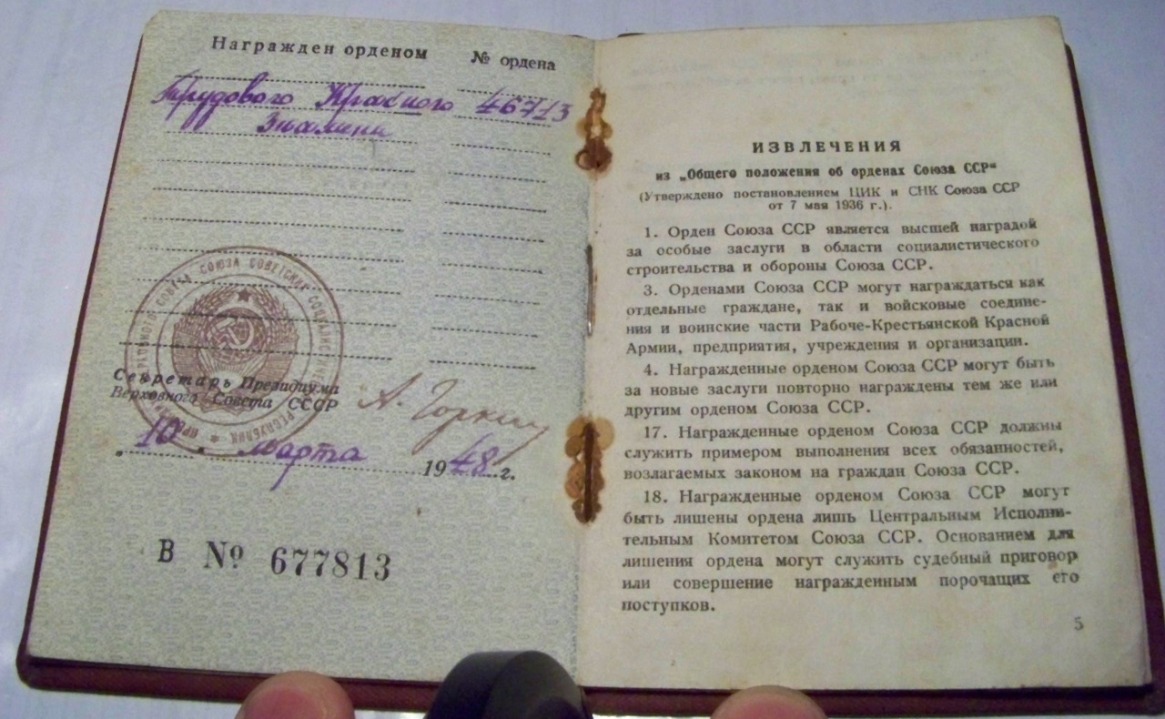 Награжден орденом № ордена
Трудового Красного 46713
Знамени
Секретарь Президиума
Верховного Совета СССР
А. Горкин
„10“ марта 1948 г.
В № 677813
ИЗВЛЕЧЕНИЯ
из „Общего положения об орденах Союза ССР“
(Утверждено постановлением ЦИК и СНК Союза ССР
от 7 мая 1936 г.).
1. Орден Союза ССР является высшей наградой
за особые заслуги в области социалистического
строительства и обороны Союза ССР.
3. Орденами Союза ССР могут награждаться как
отдельные граждане, так и войсковые соедине-
ния и воинские части Рабоче-Крестьянской Красной
Армии, предприятия, учреждения и организации.
4. Награжденные орденом Союза ССР могут быть
за новые заслуги повторно награждены тем же или
другим орденом Союза ССР.
17. Награжденные орденом Союза ССР должны
служить примером выполнения всех обязанностей,
возлагаемых законом на граждан Союза ССР.
18. Награжденные орденом Союза ССР могут
быть лишены ордена лишь Центральным Исполни-
тельным Комитетом Союза ССР. Основанием для
лишения ордена могут служить судебный приговор
или совершение награжденным порочащих его
поступков.
5